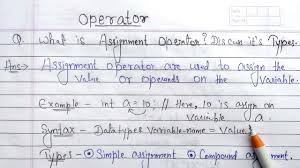 Operator
Q. What is Assignment Operator? Discuss it's Types.
Ans→ Assignment operator are used to assign the
value or operands on the variable.
Example - int a=10; // Here, 10 is assign on
variable a.
Syntax - Datatypes variable-name = Value;
Types - Simple assignment Compound assignment.